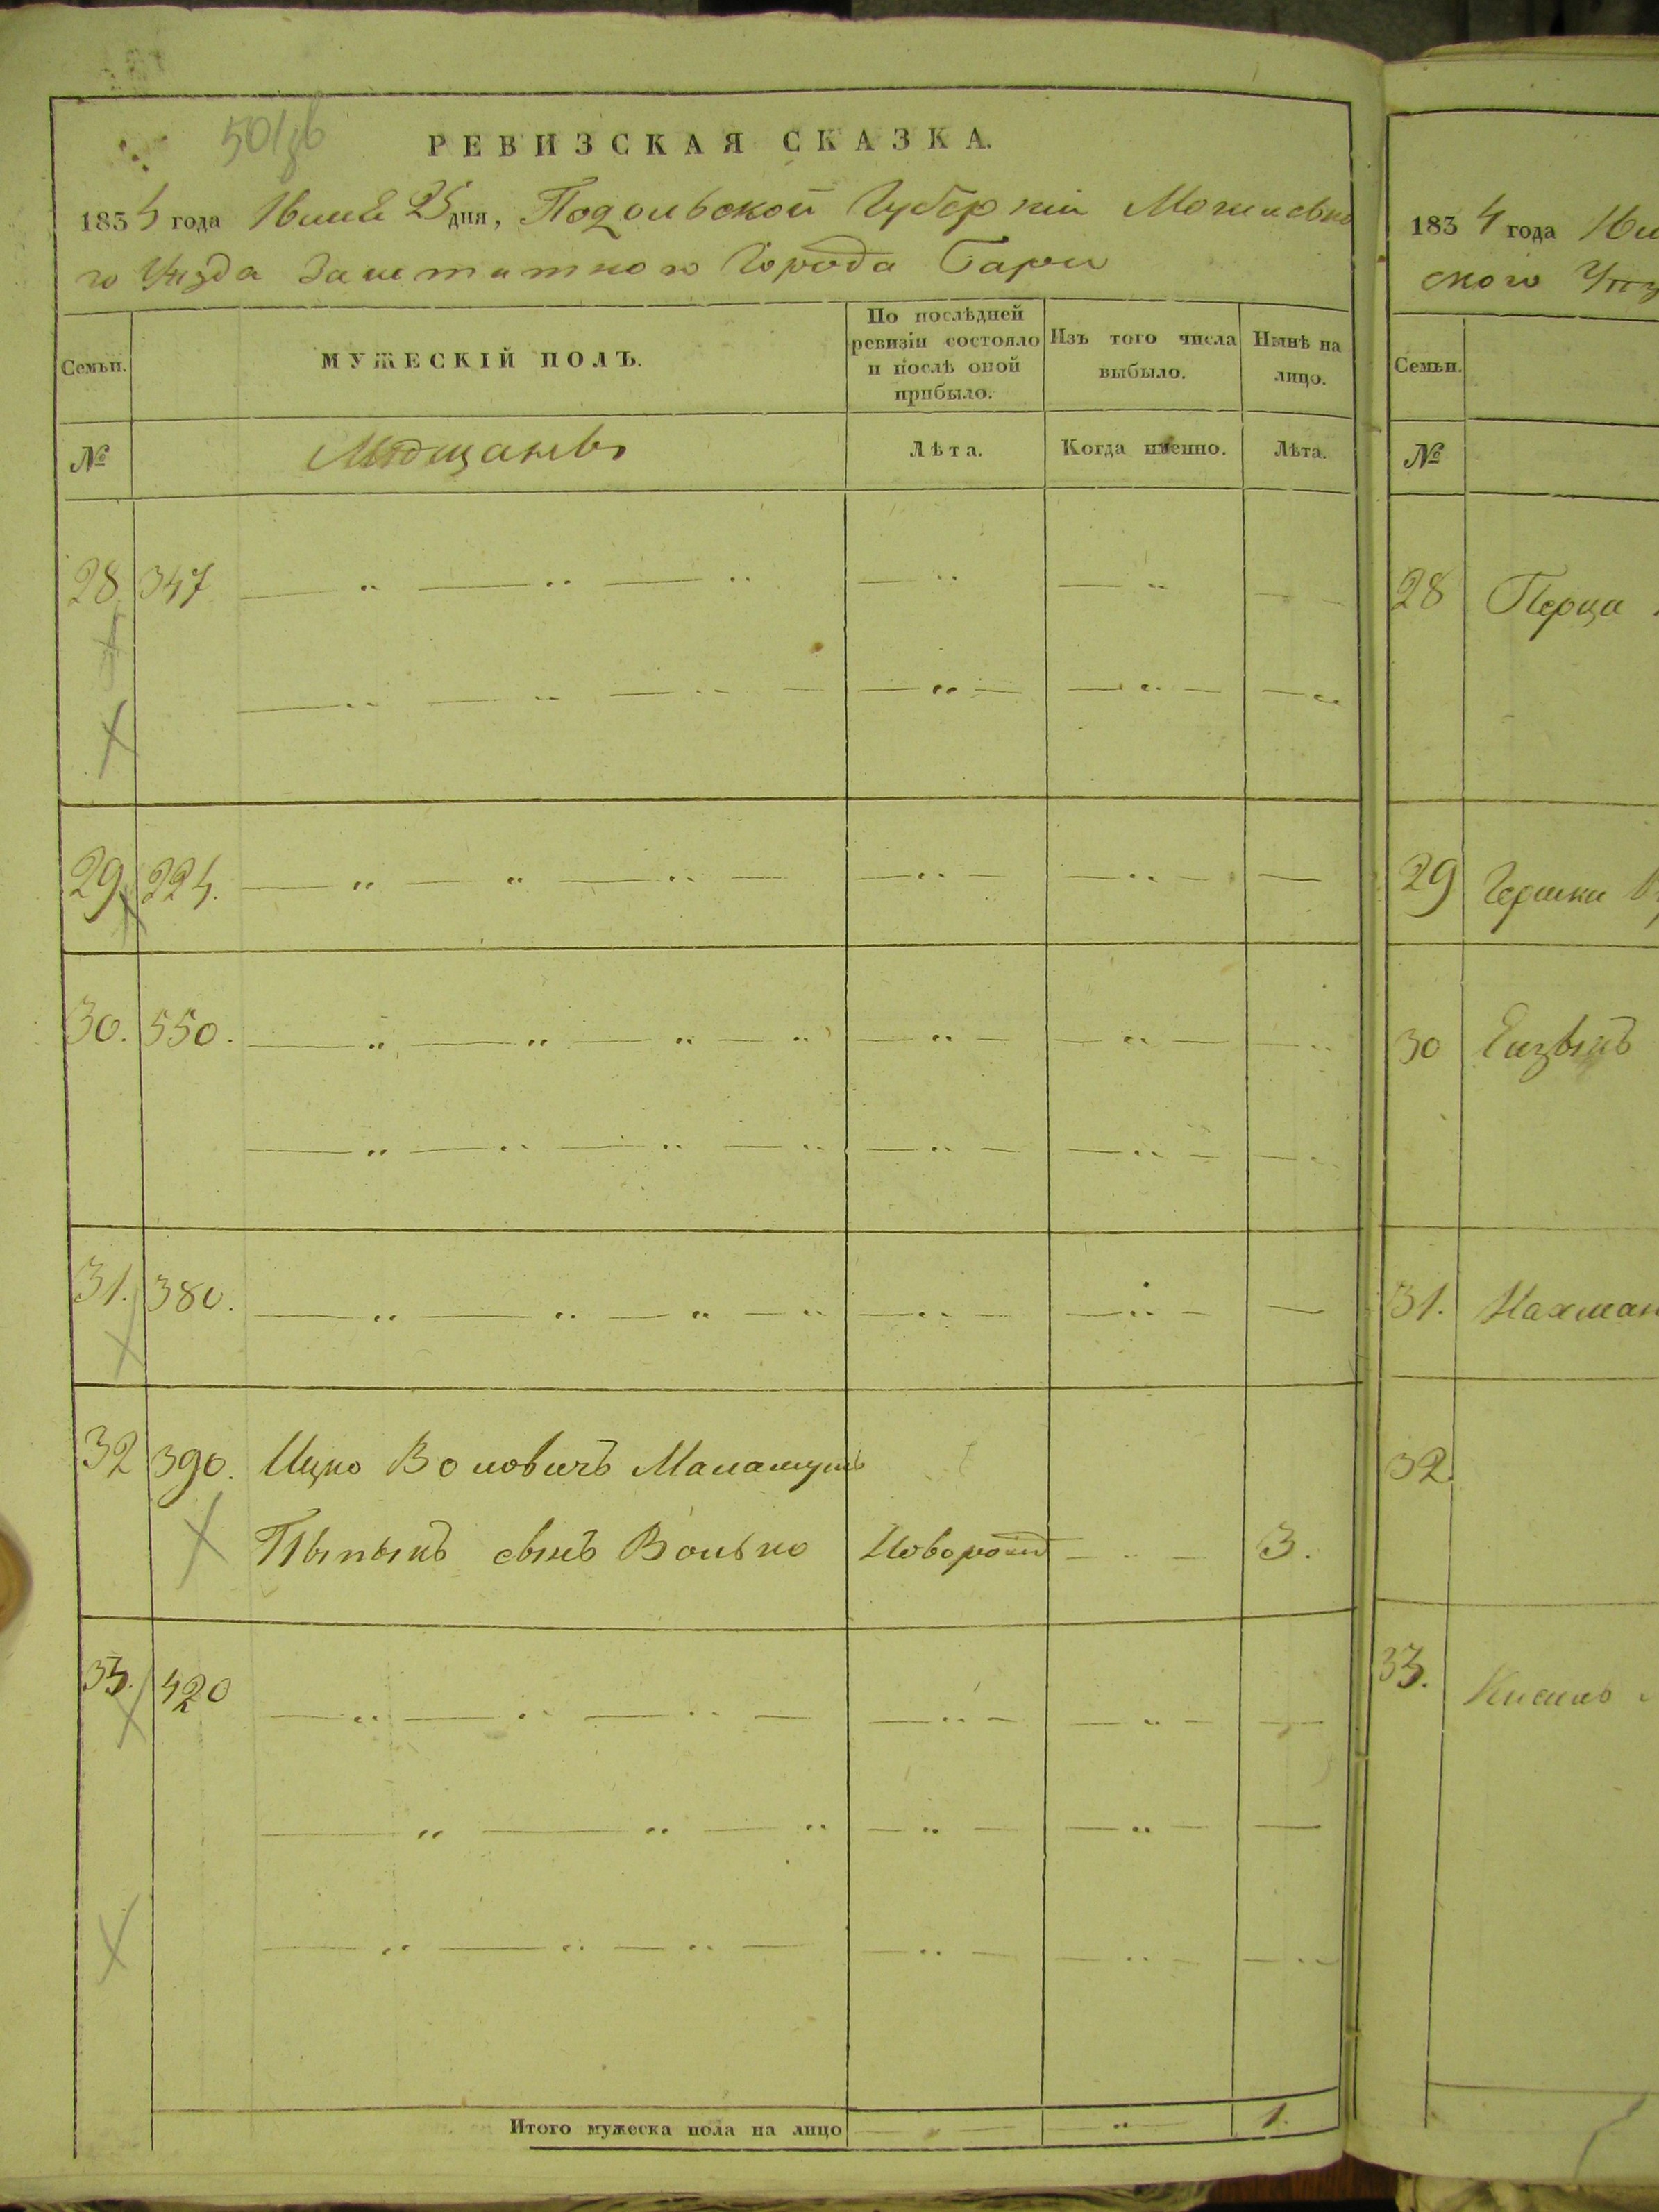 РЕВИЗСКАЯ СКАЗКА.
1834 года Июня 25 дня, Подольской Губерніи Могилевска
го Уѣзда Заштатного Города Бара
Семьи.
МУЖЕСКІЙ ПОЛЪ.
По послѣдней
ревизіи состояло
и послѣ оной
прибыло.
Изъ того числа
выбыло.
Нынѣ на
лицо.
№
Мѣщанъ
Лѣта.
Когда именно.
Лѣта.
28 347
29 224.
30. 550.
31. 380.
32 390. Ицко Воловичъ
сынъ Волько Новорожд 3.
33. 420
Итого мужеска пола на лицо 1.
1834 года
ского
Семьи.
№
28 Перца
29 Гершка
30
31. Нахман
32.
33.